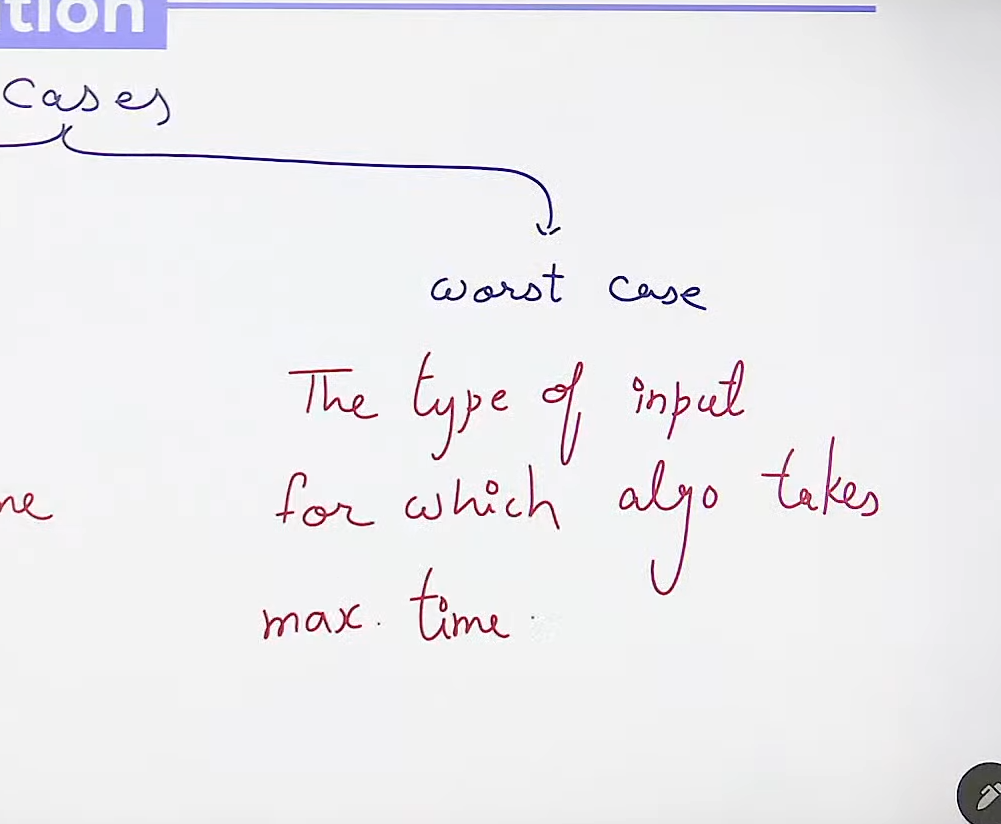 tion
Cases
worst case
The type of input
for which algo takes
ne
max. time.